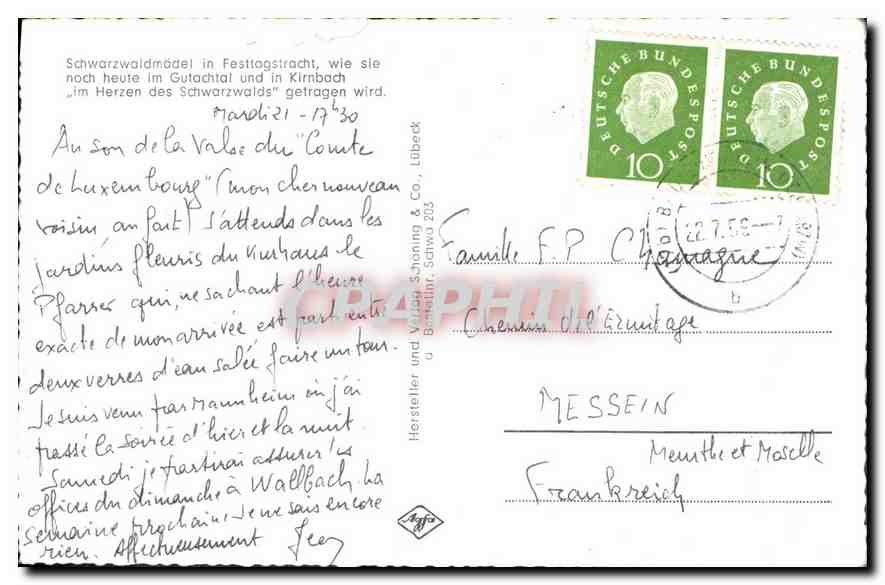 Schwarzwaldmädel in Festtagstracht, wie sie
noch heute im Gutachtal und in Kirnbach
„im Herzen des Schwarzwalds" getragen wird.
Mardi 21 - 17h30
Au son de la Valse du "Comte
de Luxembourg" (mon cher nouveau
voisin au fait) j'attends dans les
jardins fleuris du Kurhaus le
Pfarrer qui, ne sachant l'heure
exacte de mon arrivée est parti entre
deux verres d'eau salée faire un tour.
Je suis venu par Mannheim où j'ai
passé la soirée d'hier et la nuit.
Samedi je partirai assurer les
offices du dimanche à Wallbach. La
semaine prochaine je ne sais encore
rien. Affectueusement Jean
Hersteller und Verlag Schöning & Co., Lübeck
u Bestellnr. Schwa 203
Agfa
DEUTSCHE BUNDESPOST
10
DEUTSCHE BUNDESPOST
10
22.7.59
b
Famille F.P Chamagne
Chemin de l'Ermitage
MESSEIN
Meurthe et Moselle
Frankreich
CPAPHIL